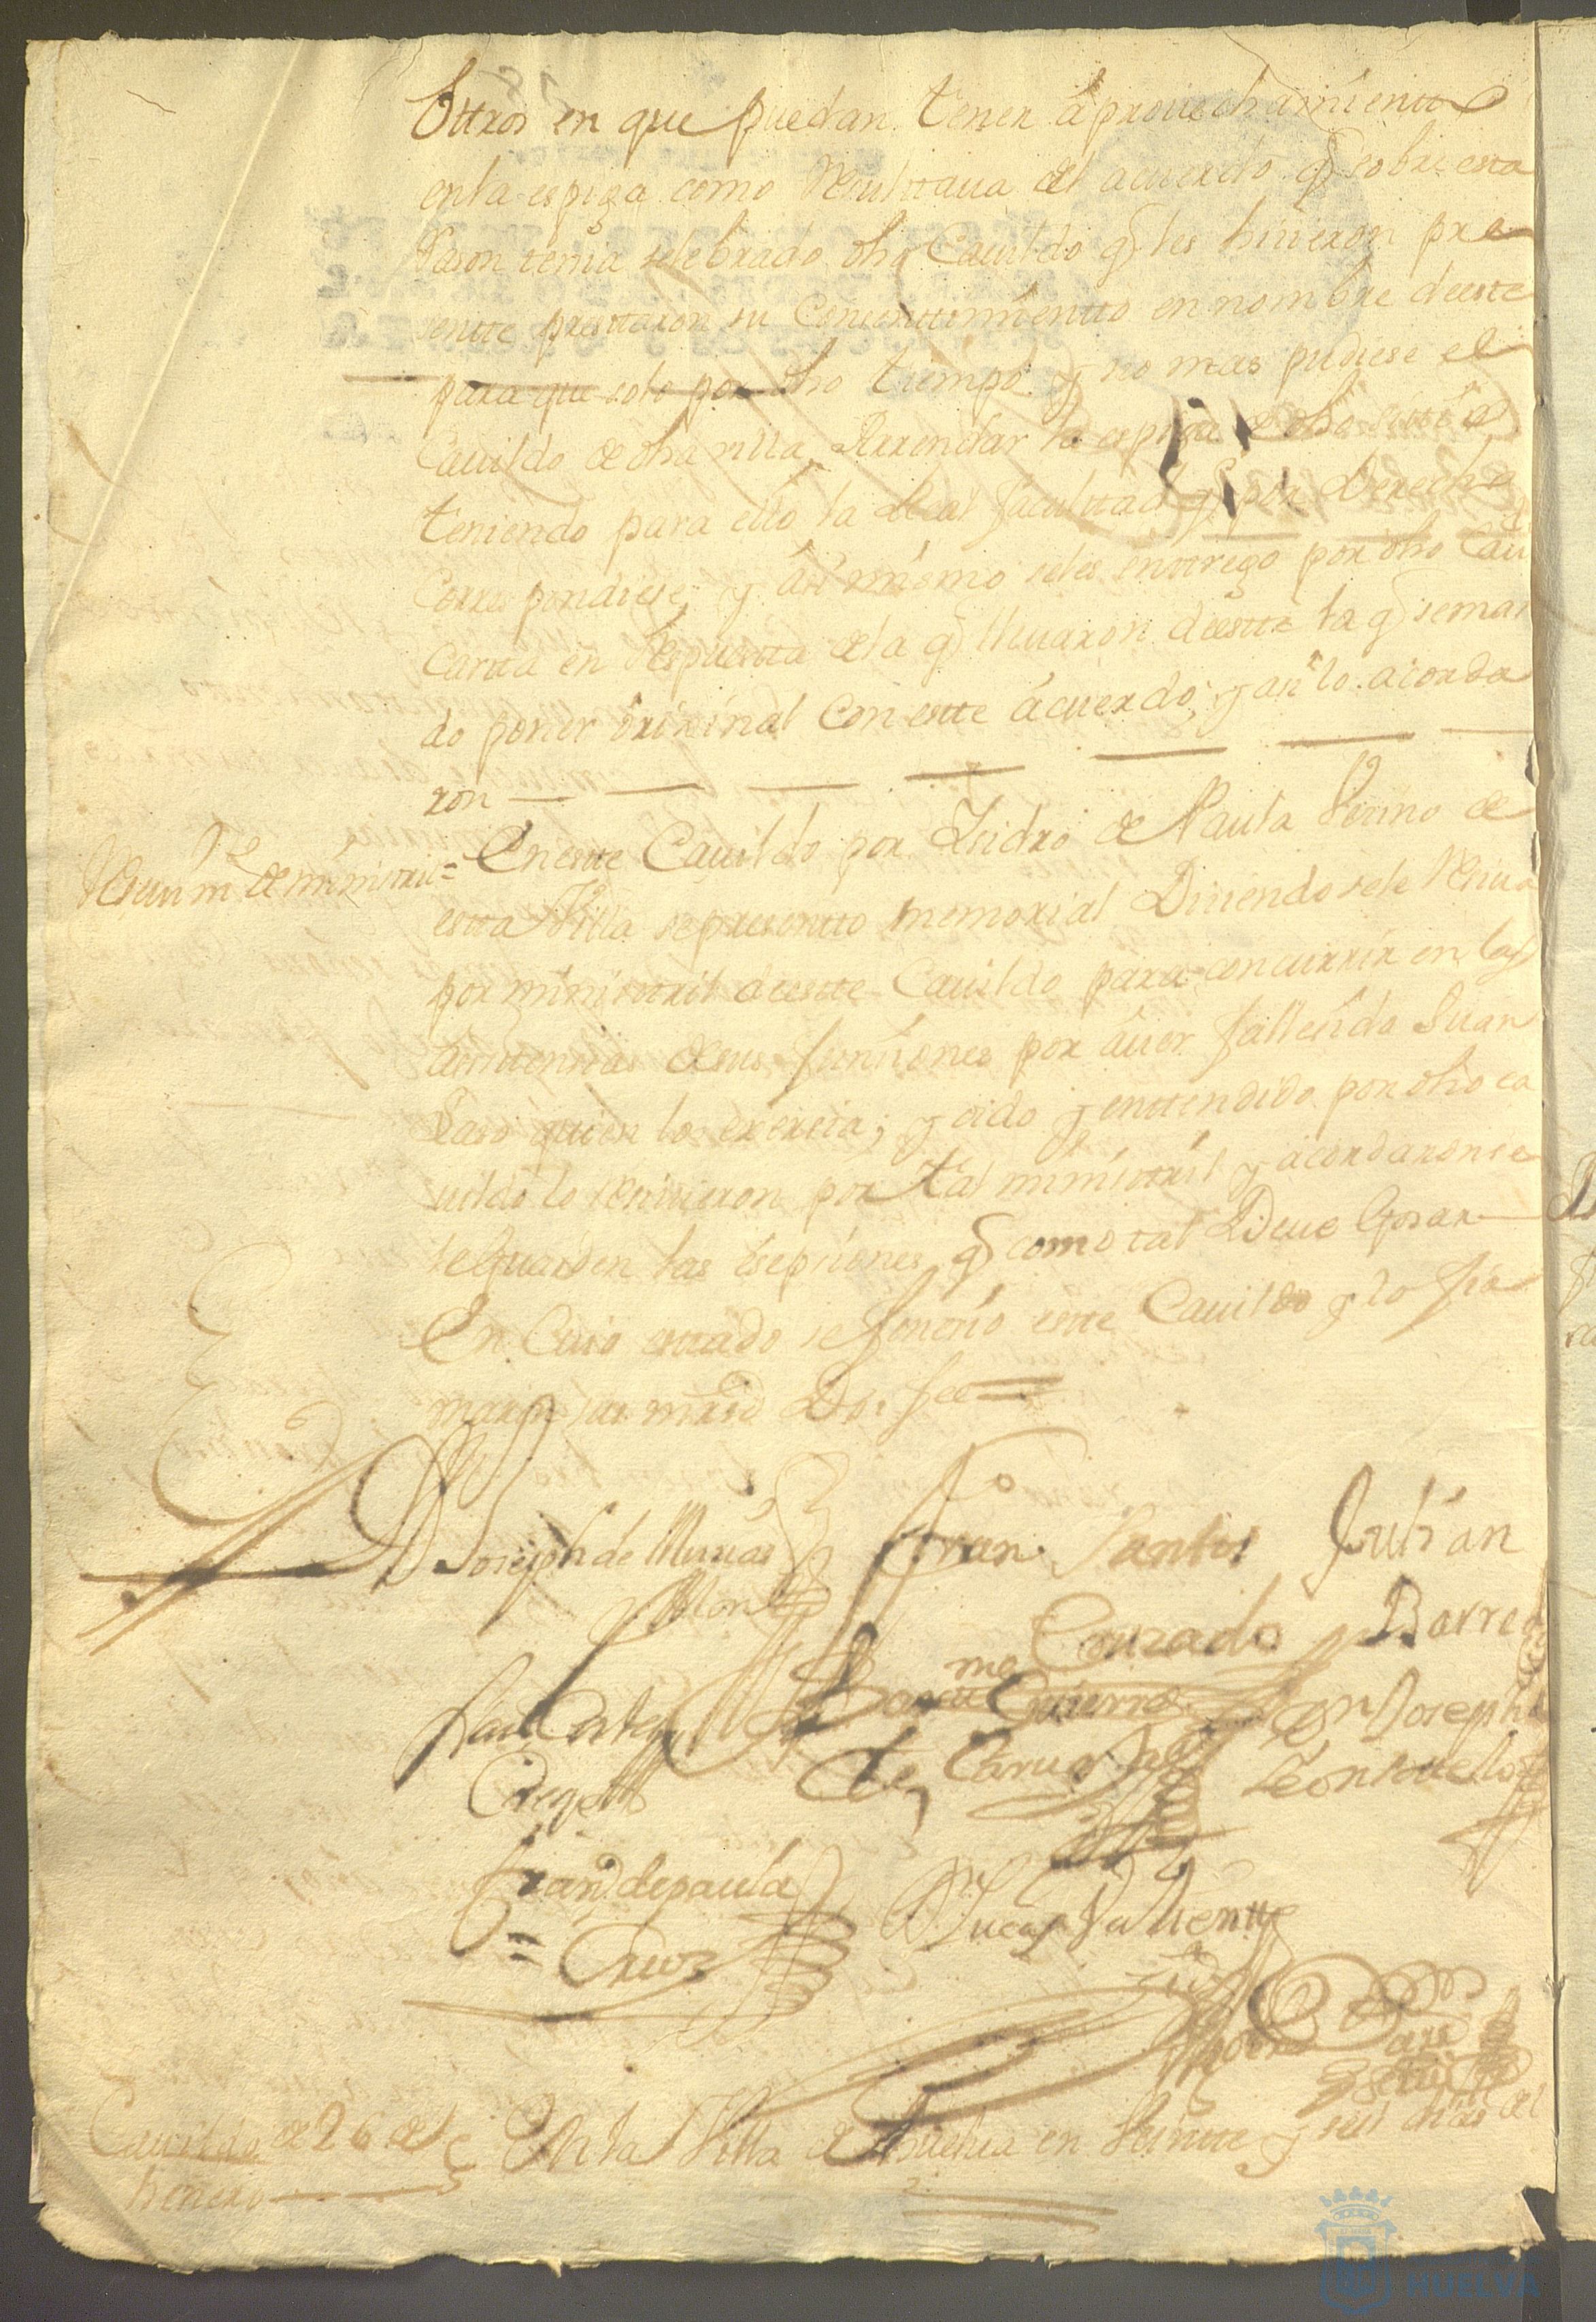 Ottros en que puedan tener aprouechamientto
enla espiga como Resulttaua del acuerdo q̃ sobre esta
Rason tenia selebrado dho Cauildo q̃ les hisieron pre
sentte prestaron su Consenttimientto en nombre deeste
para que solo por dho tiempo y no mas pudiese el
Cauildo de dha villa Arrendar la espiga de dho sittio
teniendo para ello la Real faculttad q̃ por derecho
Correspondiese, y asi mismo seles enttrego por dho Cauᵈᵒ
Cartta en Respuestta dela q̃ lleuaron deestte la q̃ se man
do poner orixinal con estte acuerdo, y asi lo acorda
ron
Resiuimᵗᵒ de ministril = En estte Cauildo por Isidro de Paula Vezino de
estta Villa se presentto memorial Disiendo sele Resiua
por ministril deestte Cauildo para concurrir en las
asistencias de sus funsiones por auer fallesido Juan
Laso quien lo exersia; y oido y enttendido por dho ca
uildo lo Resiuieron por tal ministril y acordaron se
le Guarden las esepsiones q̃ como tal Deue Gosar
En Cuio esttado se fenesio estte Cauildo y lo fir
maron sus mrds Doi fee
D Joseph de
Franᶜᵒ Santos Julián
Conrado Barre
Barᵐᵉ Gutierres Dn Joseph
de
Franᶜᵒ de paula
= Cruz
Lucas Valientte
Cauildo de 26 de En la Villa de Huelva en Veintte y seis dias del
henero
HUELVA